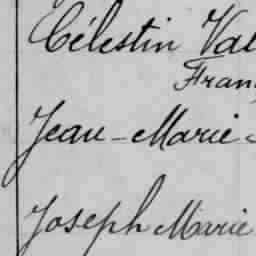 Célestin Val
Fran
Jean-Marie-
Joseph Marie